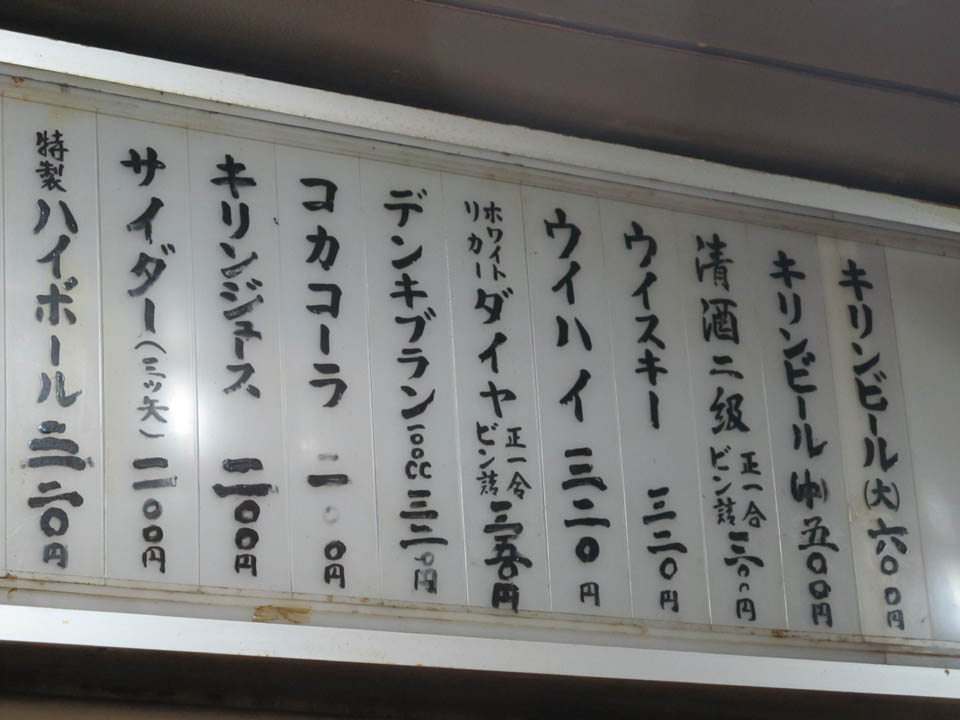 キリンビール(大)六〇〇円
キリンビール(中)五〇〇円
清酒二級ビン詰正一合三〇〇円
ウイスキー三二〇円
ウイハイ三二〇円
ホワイトリカーダイヤビン詰正一合三五〇円
デンキブラン一〇〇CC三二〇円
コカコーラ二〇〇円
キリンジュース二〇〇円
サイダー(三ツ矢)二〇〇円
特製ハイボール三二〇円